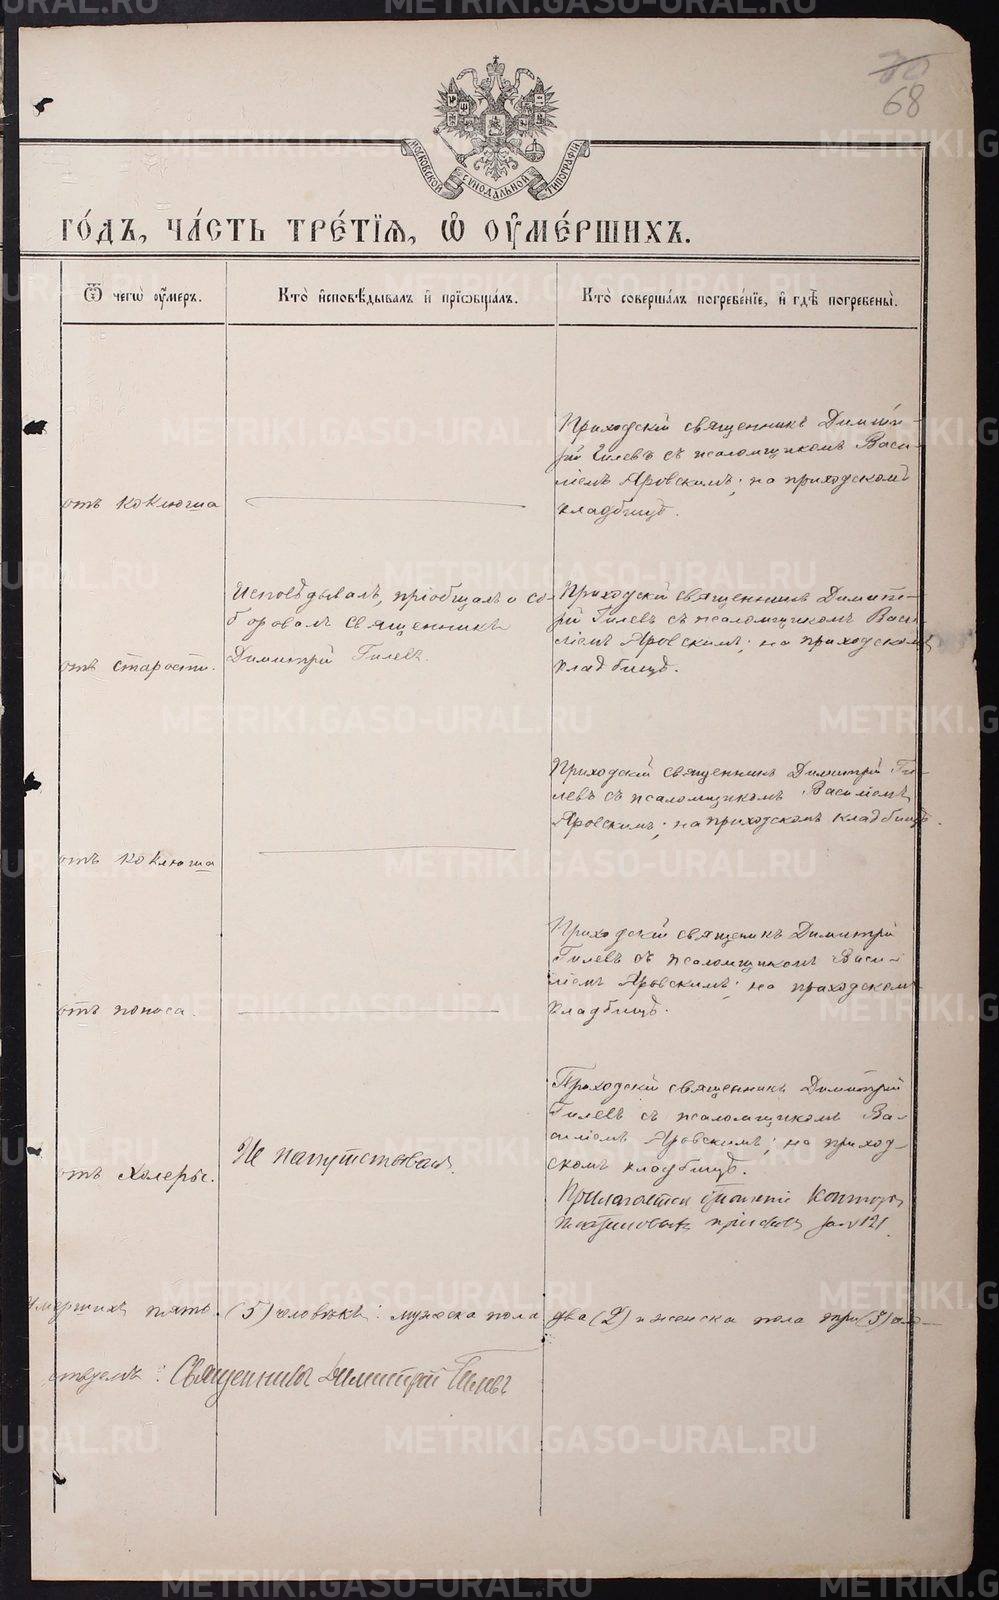 METRIKI.GASO-URAL.RU
70
68
МОСКОВСКОЙ СѴНОДАЛЬНОЙ ТИПОГРАФІИ
го́дъ, ча́сть тре́тїѧ, ѡ҆ оу҆ме́ршихъ.
Ѿ чегѡ̀ оу҆́меръ.
Кто̀ и҆сповѣ́дывалъ и҆ прїѡбща́лъ.
Кто̀ соверша́лъ погребе́нїе, и҆ гдѣ̀ погребены̀.
отъ коклюша
Приходскій священникъ Димит-
рій Гилевъ съ псаломщикомъ Васи-
ліемъ Яровскимъ; на приходскомъ
кладбищѣ.
отъ старости.
Исповѣдывалъ, пріобщалъ и со-
боровалъ священникъ
Димитрій Гилевъ.
Приходскій священникъ Димит-
рій Гилевъ съ псаломщикомъ Васи-
ліемъ Яровскимъ; на приходскомъ
кладбищѣ.
отъ коклюша
Приходскій священникъ Димитрій Ги-
левъ съ псаломщикомъ Василіемъ
Яровскимъ; на приходскомъ кладбищѣ.
отъ поноса.
Приходскій священикъ Димитрій
Гилевъ съ псаломщикомъ Васи-
ліемъ Яровскимъ; на приходскомъ
кладбищѣ.
отъ холеры.
Не напутствовалъ
Приходскій священникъ Димитрій
Гилевъ съ псаломщикомъ Ва-
силіемъ Яровскимъ; на приход-
скомъ кладбищѣ.
Прилагается отношеніе Конторы
Платиновыхъ пріисковъ за № 121
Умершихъ пять (5) человѣкъ: мужеска пола два (2) и женска пола три (3)
Священникъ Димитрій Гилевъ